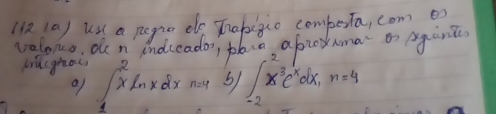 1) 2.1a) use a regra do Trapézio composta, com os
valores, de n indicados, para aproximar as seguintes
integrais
a) ∫₁² x ln x dx n=4 b) ∫₋₂² x³eˣ dx, n=4